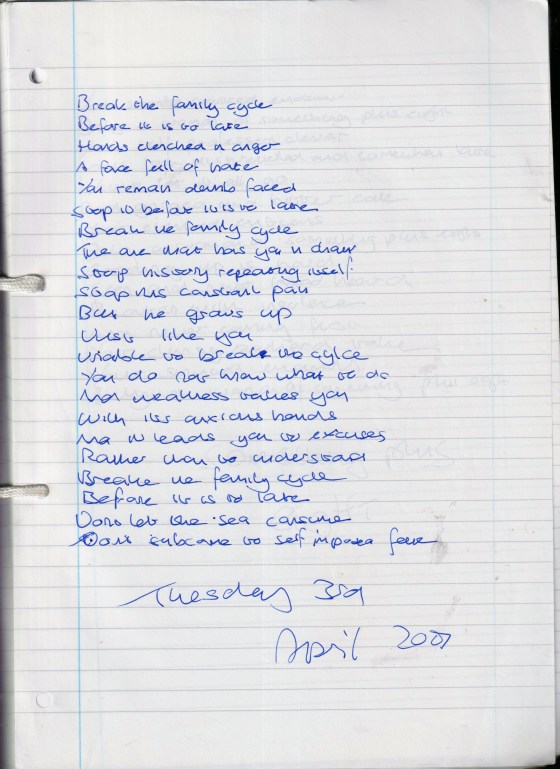 Break the family cycle
Before it is to late
Hands clenched in anger
A face full of hate
You remain dumb faced
Stop it before it is to late
Break the family cycle
The one that has you in
Stop history repeating itself
Stop this constant pain
But he grows up
Just like you
Unable to break the cylce
You do not know what to do
And weakness takes you
With its anxious hands
And it leads you to excuses
Rather than to understand
Break the family cycle
Before it is to late
Dont let the sea consume
Dont to self imposed fate
Tuesday 3rd
April 2007